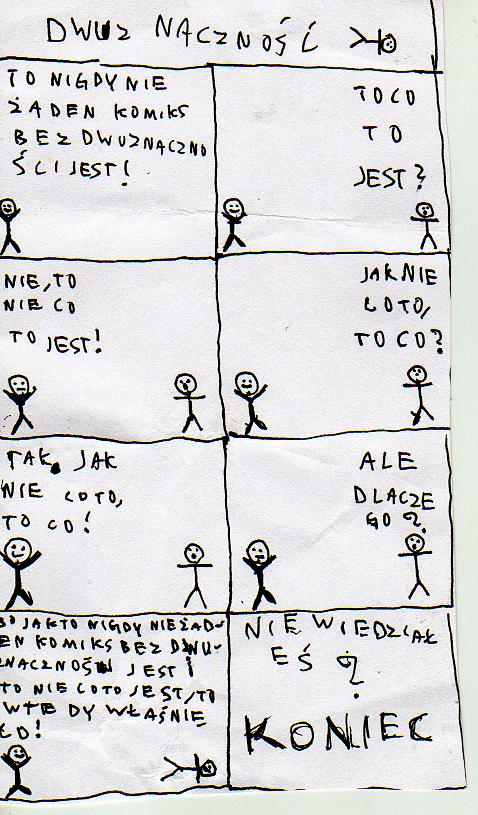 DWUZNACZNOŚĆ
TO NIGDY NIE
ŻADEN KOMIKS
BEZ DWUZNACZNO
ŚCI JEST!
TO CO
TO
JEST?
NIE, TO
NIE CO
TO JEST!
JAK NIE
COTO,
TO CO?
TAK, JAK
NIE COTO,
TO CO!
ALE
DLACZE
GO?
BO JAK TO NIGDY NIE ŻAD-
EN KOMIKS BEZ DWU-
ZNACZNOŚCI JEST I
TO NIE COTO JEST, TO
WTEDY WŁAŚNIE
CO!
NIE WIEDZIAŁ
EŚ?
KONIEC